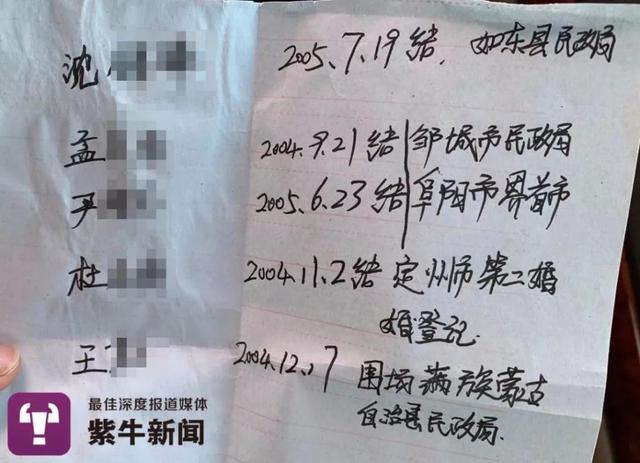 沈 2005.7.19 结，如东县民政局
孟 2004.9.21 结 邹城市民政局
尹 2005.6.23 结 阜阳市界首市
杜 2004.11.2 结 定州师第二婚
婚登记.
王 2004.12.17 围场满族蒙古
自治县民政局.
最佳深度报道媒体
紫牛新闻